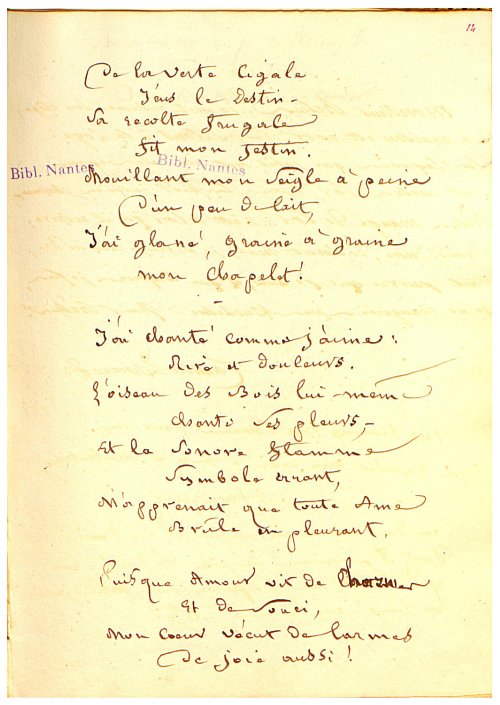 14
De la verte Cigale
J'eus le Destin -
Sa récolte frugale
Fit mon festin.
Bibl. Nantes Bibl. Nantes
Mouillant mon seigle à peine
D'un peu de lait,
J'ai glané, graine à graine
mon Chapelet!
-
J'ai chanté comme j'aime :
Rire et douleurs.
L'oiseau des Bois lui-même
Chante ses pleurs,-
Et la Sonore flamme
Symbole errant,
M'apprenait que toute Ame
Brûle en pleurant.
Puisque Amour vit de Charmes
Et de Souci,
Mon Coeur vécut de larmes
De joie aussi !